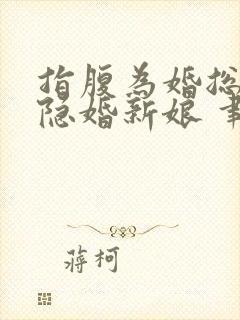 指腹為婚总
隐婚新娘
蔣柯